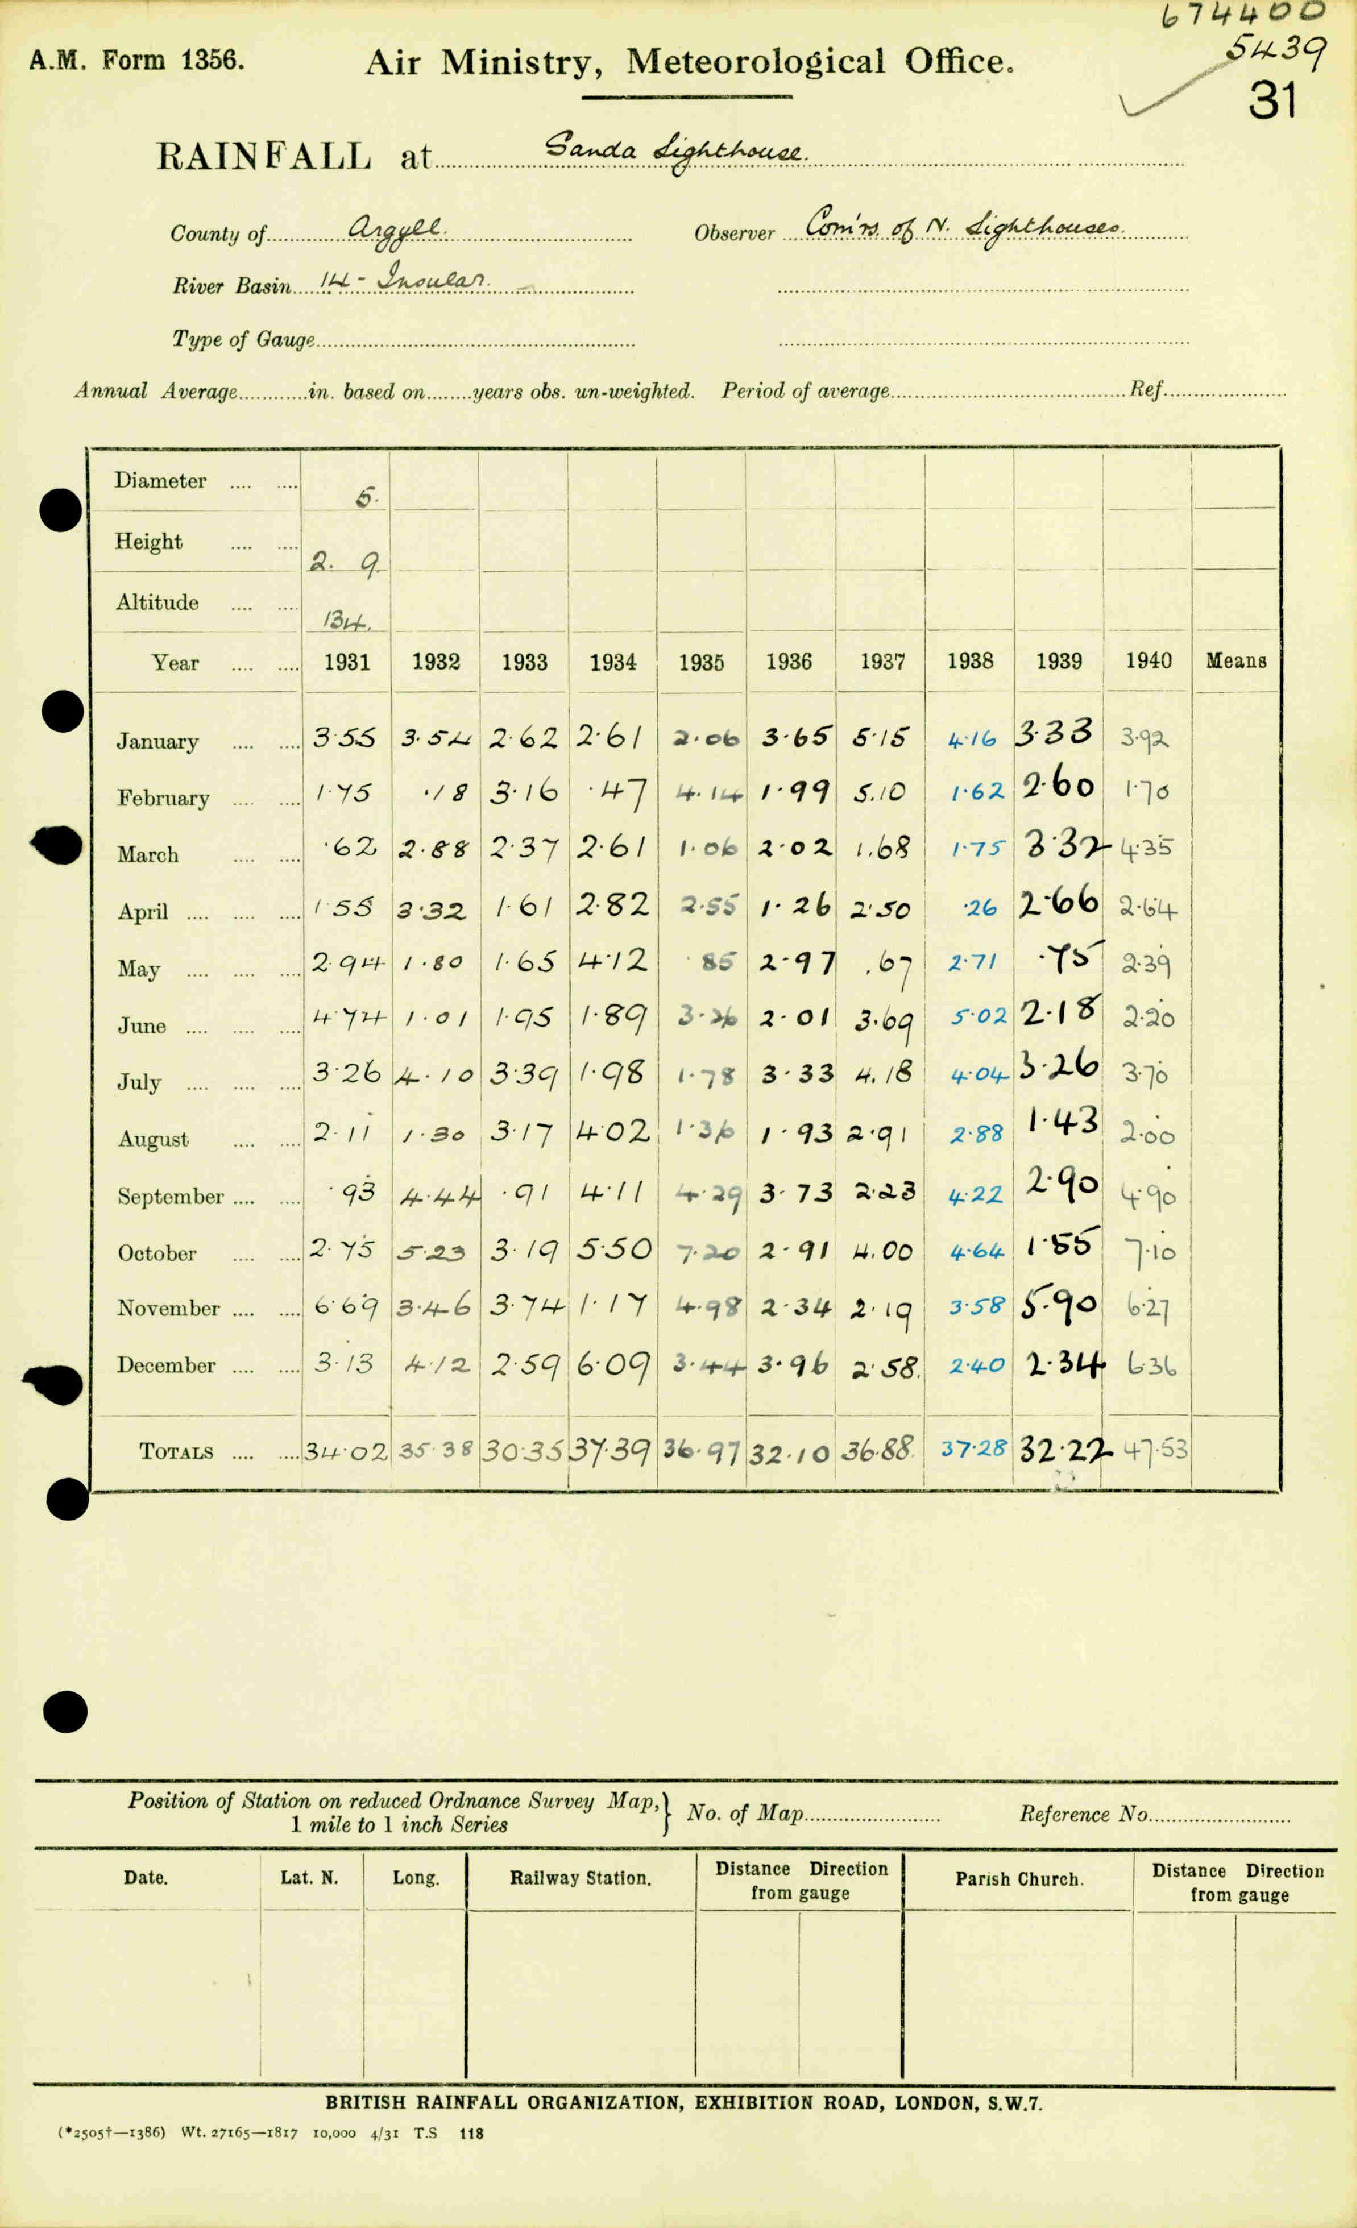 674400
5439
31
A.M. Form 1356.
Air Ministry, Meteorological Office.
RAINFALL at Sanda Lighthouse.
County of Argyll. Observer Com'rs. of N. Lighthouses.
River Basin 14 - Insular.
Type of Gauge
Annual Average in. based on years obs. un-weighted. Period of average Ref.
Diameter 5.
Height 2. 9
Altitude 134.
Year 1931 1932 1933 1934 1935 1936 1937 1938 1939 1940 Means
January 3·55 3·54 2·62 2·61 2·06 3·65 5·15 4·16 3·33 3·92
February 1·75 ·18 3·16 ·47 4·14 1·99 5.10 1·62 2·60 1·70
March ·62 2·88 2·37 2·61 1·06 2·02 1.68 1·75 3·32 4·35
April 1·55 3·32 1·61 2·82 2·55 1·26 2·50 ·26 2·66 2·64
May 2·94 1·80 1·65 4·12 ·85 2·97 .67 2·71 ·75 2·39
June 4·74 1·01 1·95 1·89 3·26 2·01 3·69 5·02 2·18 2·20
July 3·26 4·10 3·39 1·98 1·78 3·33 4.18 4·04 3·26 3·70
August 2·11 1·30 3·17 4·02 1·36 1·93 2·91 2·88 1·43 2·00
September ·93 4·44 ·91 4·11 4·29 3·73 2·23 4·22 2·90 4·90
October 2·75 5·23 3·19 5·50 7·20 2·91 4.00 4·64 1·55 7·10
November 6·69 3·46 3·74 1·17 4·98 2·34 2·19 3·58 5·90 6·27
December 3·13 4·12 2·59 6·09 3·44 3·96 2·58. 2·40 2·34 6·36
TOTALS 34·02 35·38 30·35 37·39 36·97 32·10 36·88. 37·28 32·22 47·53
Position of Station on reduced Ordnance Survey Map,} No. of Map Reference No.
1 mile to 1 inch Series
Date. Lat. N. Long. Railway Station. Distance Direction from gauge Parish Church. Distance Direction from gauge
BRITISH RAINFALL ORGANIZATION, EXHIBITION ROAD, LONDON, S.W.7.
(*2505†—1386) Wt. 27165—1817 10,000 4/31 T.S 118